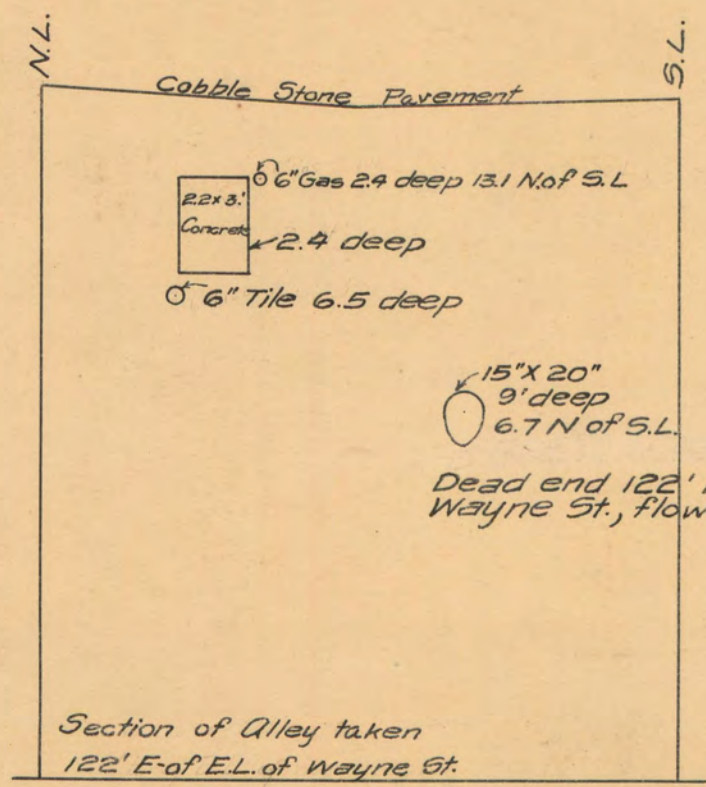 N.L.
S.L.
Cobble Stone Pavement
6" Gas 2.4 deep 13.1 N.of S.L
2.2 x 3.'
Concrete
2.4 deep
6" Tile 6.5 deep
15" X 20"
9' deep
6.7 N of S.L.
Dead end 122'
Wayne St., flow
Section of Alley taken
122' E-of E.L. of Wayne St.